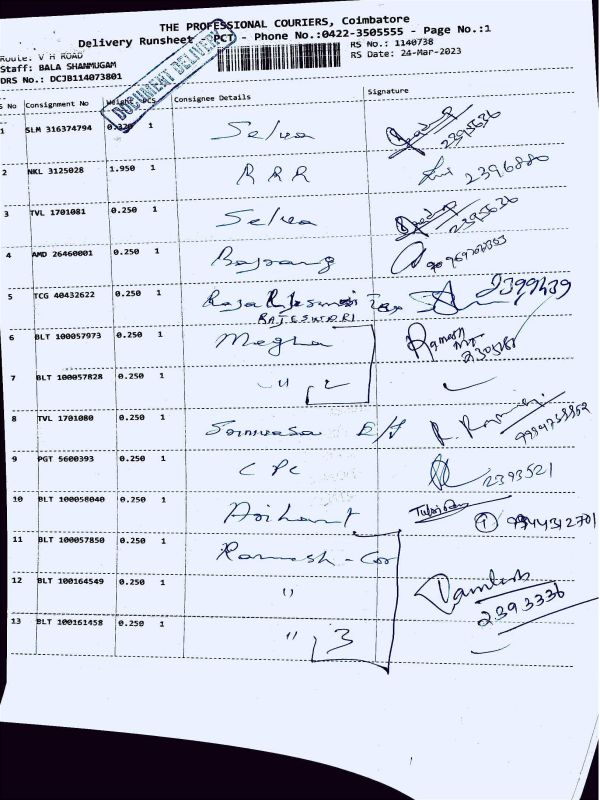 THE PROFESSIONAL COURIERS, Coimbatore
Delivery Runsheet - PCT - Phone No.:0422-3505555 - Page No.:1
RS No.: 1140738
Route: V H ROAD
RS Date: 24-Mar-2023
Staff: BALA SHANMUGAM
DRS No.: DCJB114073801
DOCUMENT DELIVERY
S No Consignment No Weight PCS Consignee Details Signature
1 SLM 316374794 0.320 1 Selva 2395636
2 NKL 3125028 1.950 1 R R R 2396880
3 TVL 1701081 0.250 1 Selva 2395636
4 AMD 26460001 0.250 1 Bajrang
5 TCG 40432622 0.250 1 Raja Rajeswari 2399439
RAJESWARI
6 BLT 100057973 0.250 1 Megha Ramesh
7 BLT 100057828 0.250 1 " 2
8 TVL 1701080 0.250 1 Srinivasa E/H
9 PGT 5600393 0.250 1 C P C 2393521
10 BLT 100058040 0.250 1 Arihant 9944312701
11 BLT 100057850 0.250 1 Ramesh - Cor
12 BLT 100164549 0.250 1 " 2393336
13 BLT 100161458 0.250 1 " 3